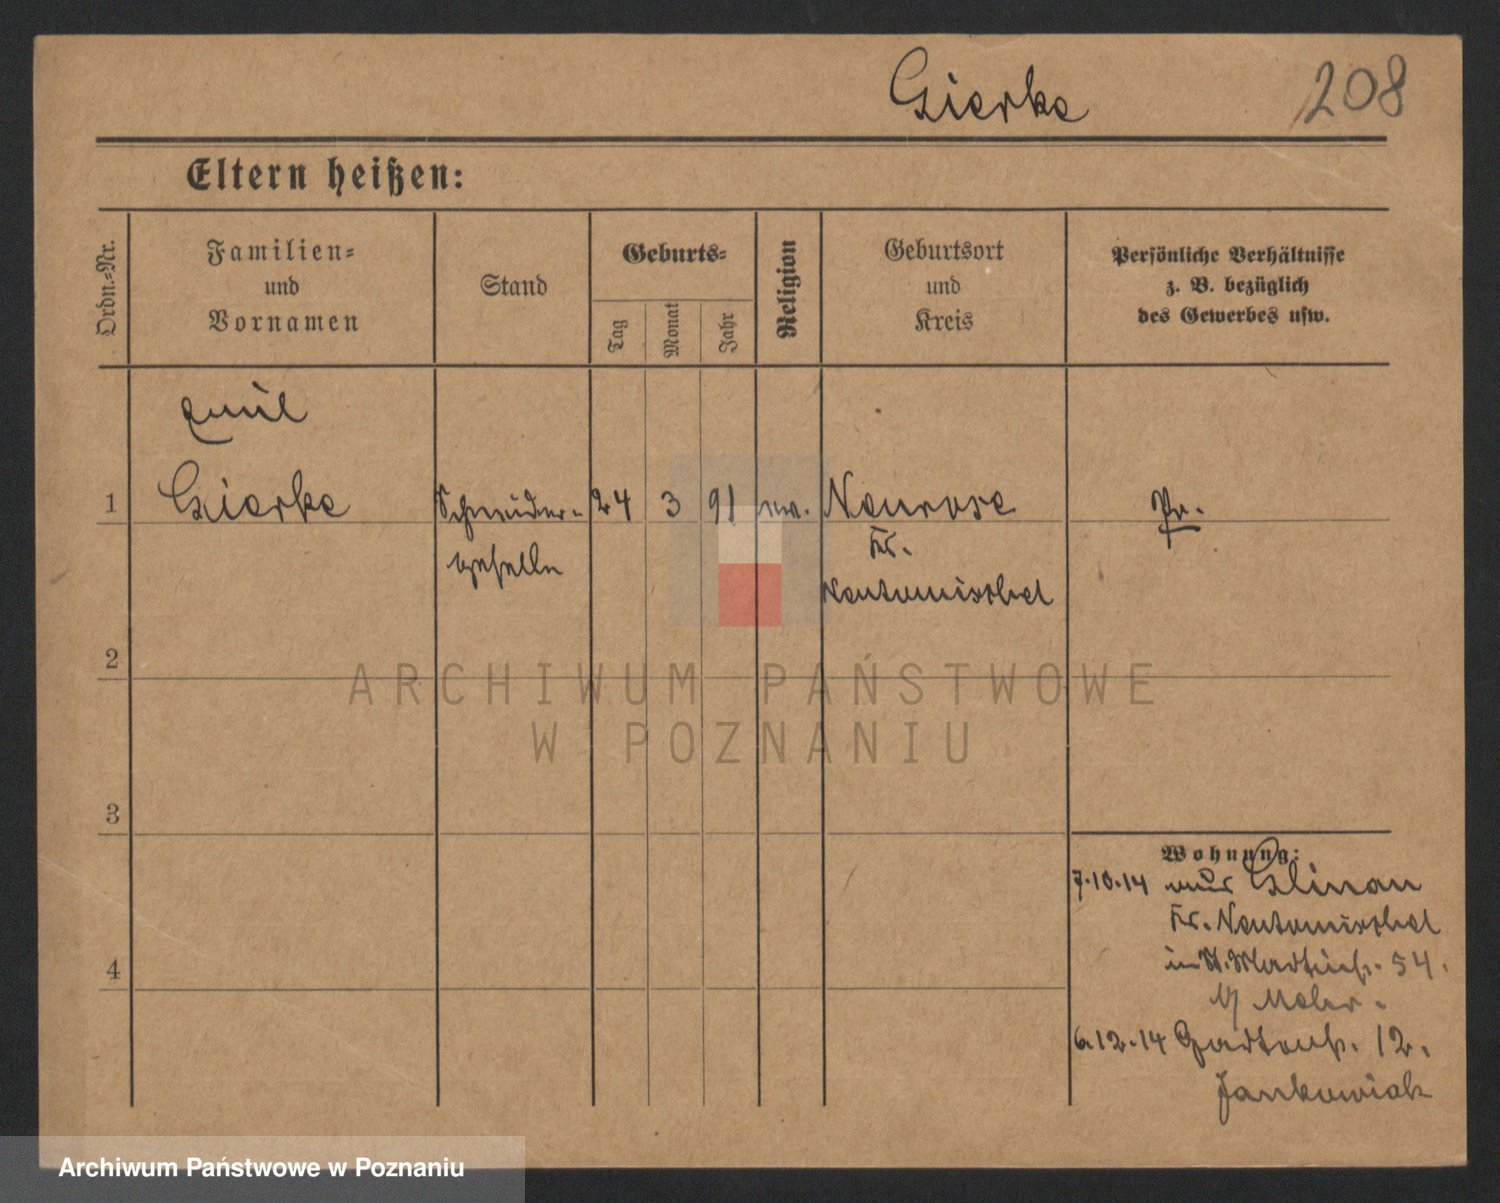 Gierke 208
Eltern heißen:
Ordn.-Nr.
Familien-
und
Vornamen
Stand
Geburts-
Tag
Monat
Jahr
Religion
Geburtsort
und
Kreis
Persönliche Verhältnisse
z. B. bezüglich
des Gewerbes usw.
Emil
1 Gierke Schneider- 24 3 91 ev. Neurose Pr.
geselle Kr.
Neutomischel
2
3
4
Wohnung:
7.10.14 aus Glinau
Kr. Neutomischel
in St. Martinstr. 54.
b/ Maler.
6.12.14 Gartenstr. 12.
Jankowiak
ARCHIWUM PAŃSTWOWE
W POZNANIU
Archiwum Państwowe w Poznaniu